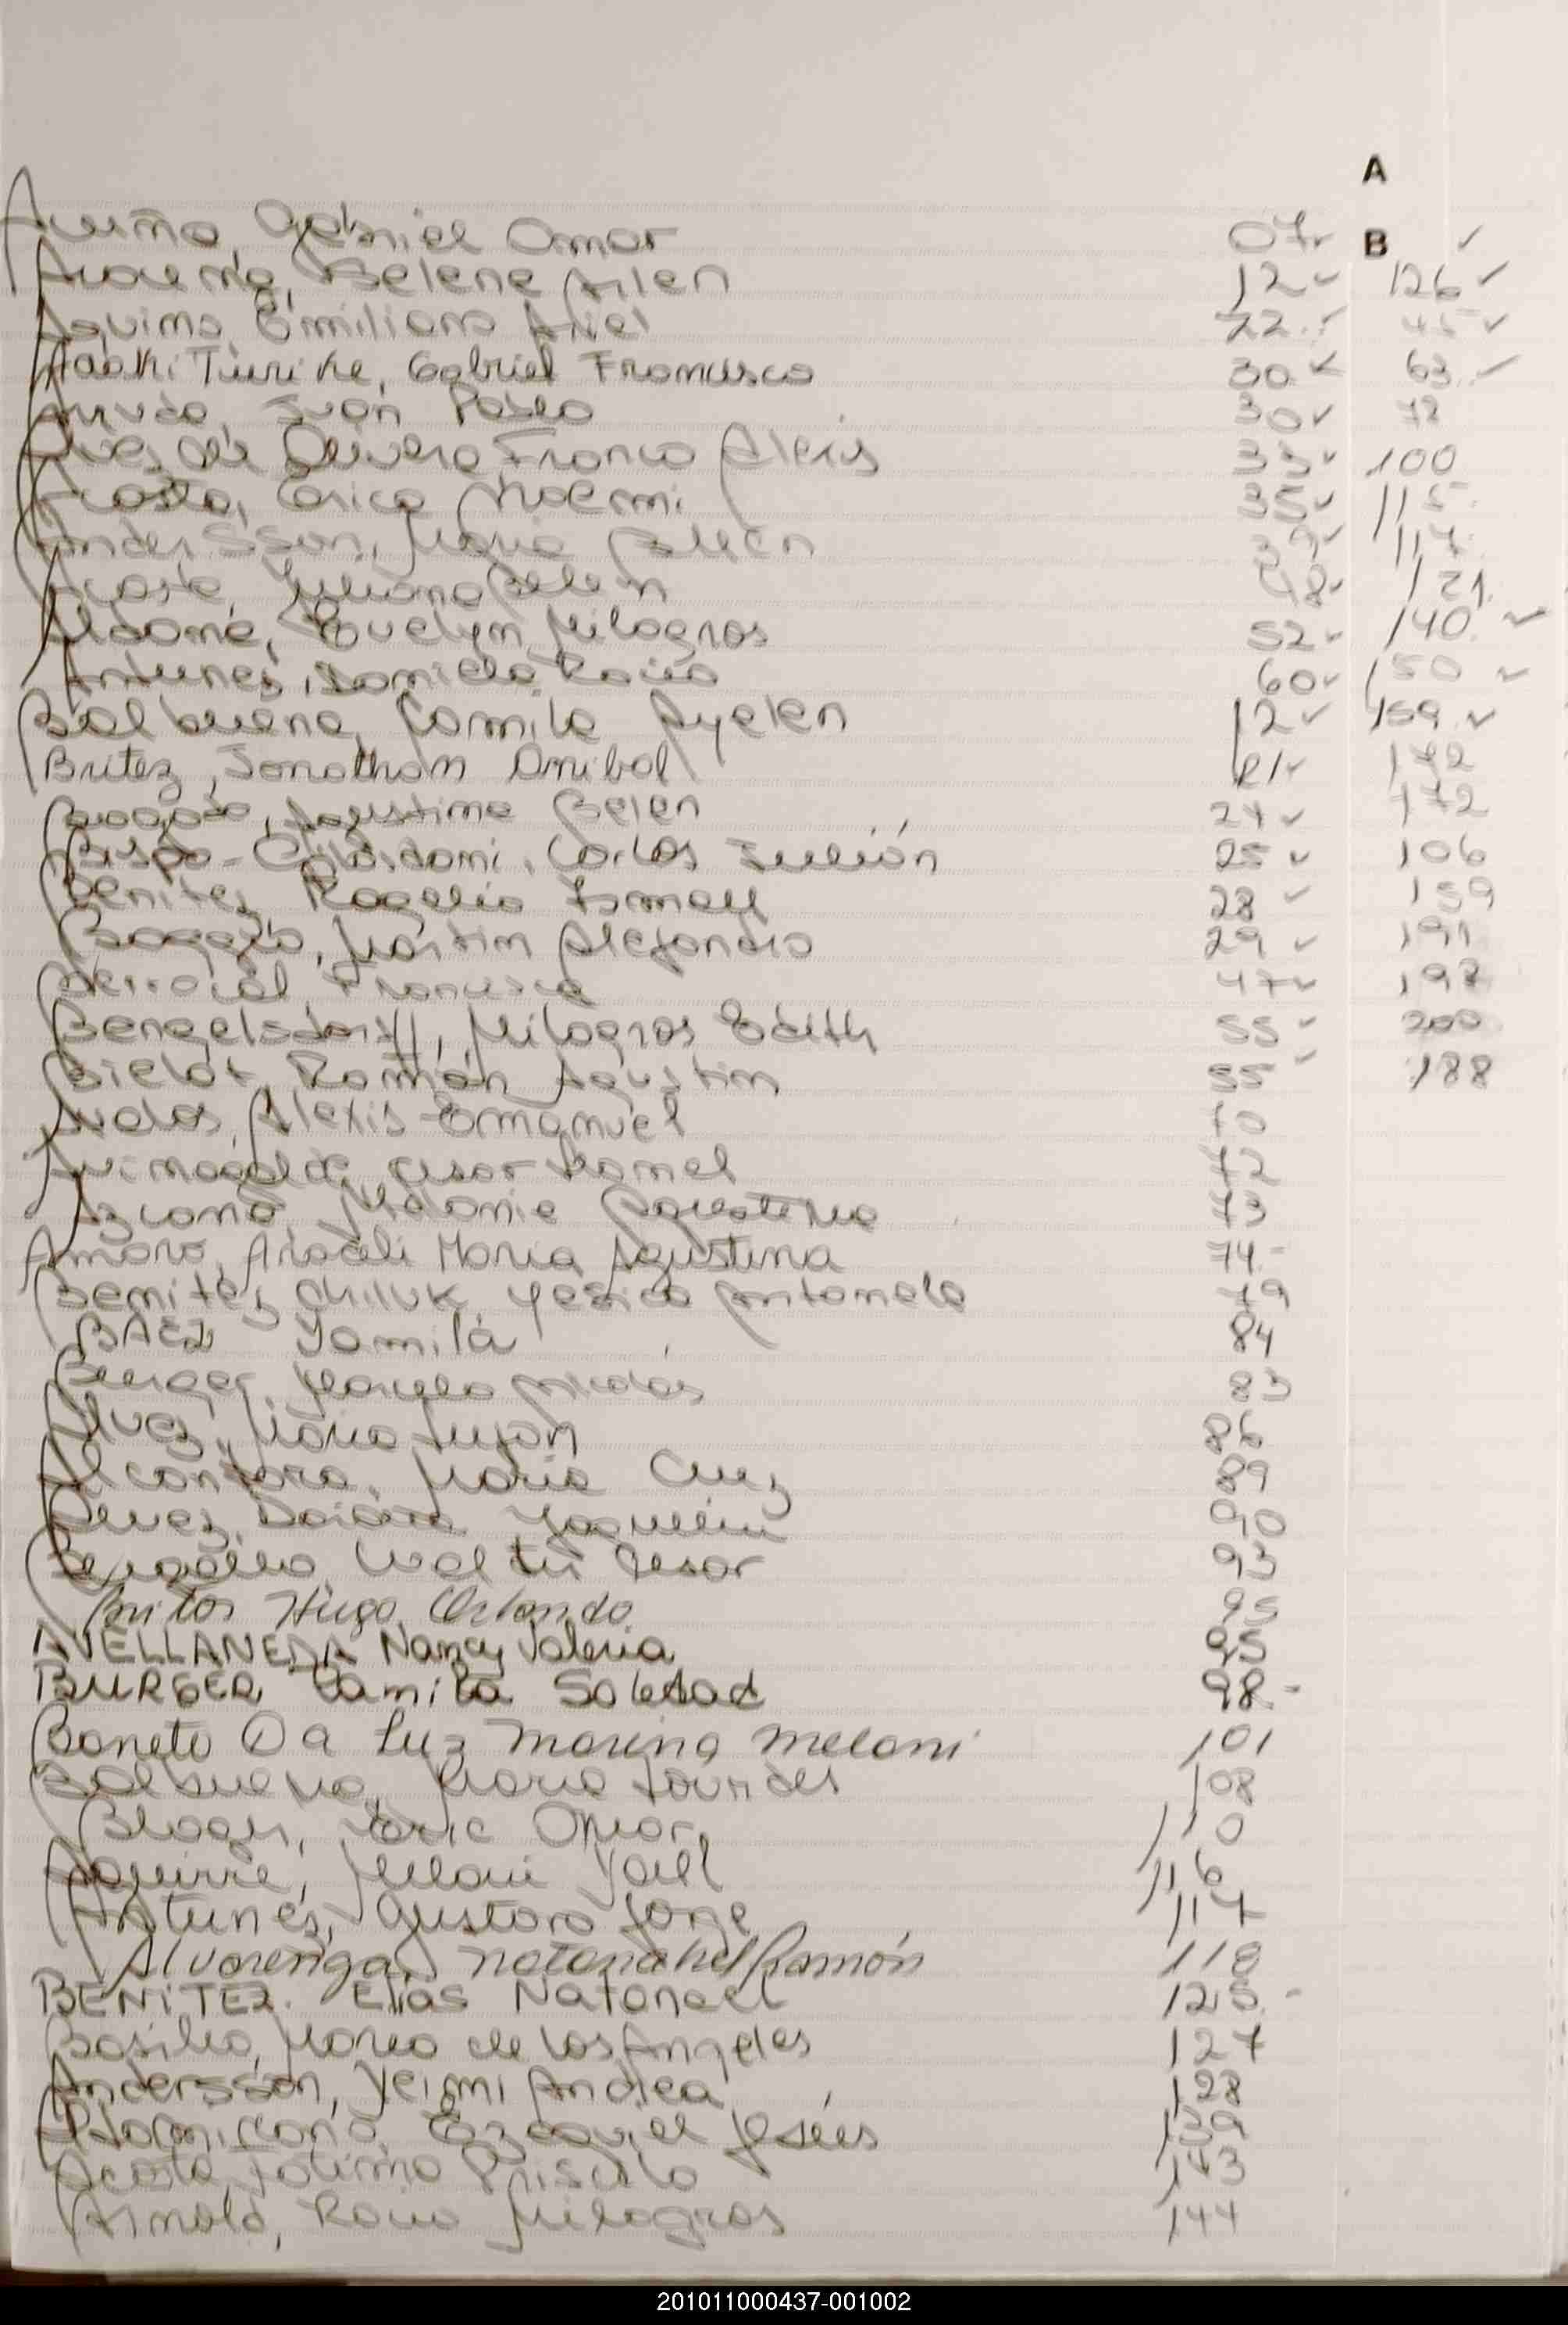 A
Acuña, Gabriel Omar 07
B
Belene Ailen 12 126
Aquino, Emiliano Ariel 22 45
Gabriel Francisco 30 63
Arruda, Juan Pablo 30 72
Alves de Olivera Franco Alexis 33 100
Acosta, Erica Noemi 35 115
Andersson, Maria Belen 117
Acosta, Juliana Belen 48 121
Aldama, Evelyn Milagros 52 140
Antunez, Daniela Rocio 60 150
Balbuena, Camila Ayelen 12 159
Britez, Jonathan Anibal 21 172
Agustina Belen 24 172
Carlos Julión 25 106
Benitez, Rogelio Ismael 28 159
Martin Alejandro 29 191
Francisca 47 197
Bengelsdorff, Milagros Edith 55 200
Bielot, Román Agustin 55 188
Alexis Emanuel 70
Cesar Daniel 72
Azcona, Melanie Agustina 73
Amaro, Araceli Maria Agustina 74
Benitez Chiluk Yesica Antonela 79
BAEZ Yamila 84
Marcelo Nicolás 83
Alvez, Maria Lujan 86
Alcantara, Maria Cruz 89
Alvez, Daiana 90
Walter Cesar 93
Britos Hugo Orlando 95
AVELLANEDA Nancy Valeria 95
BURGER Camila Soledad 98
Boneto Da Luz Marina Melani 101
Balbuena, Maria Lourdes 108
Eric Omar 110
Aguirre, Melani Yael 116
Antunes, Gustavo Jorge 117
Alvarenga, Natanahel Ramón 118
BENITEZ. Elias Natanael 125
Basilio, Maria de los Angeles 127
Andersson, Yeimi Andrea 128
Ezequiel Jesús 139
Acosta, Fatima Priscila 143
Arnold, Rocio Milagros 144
201011000437-001002